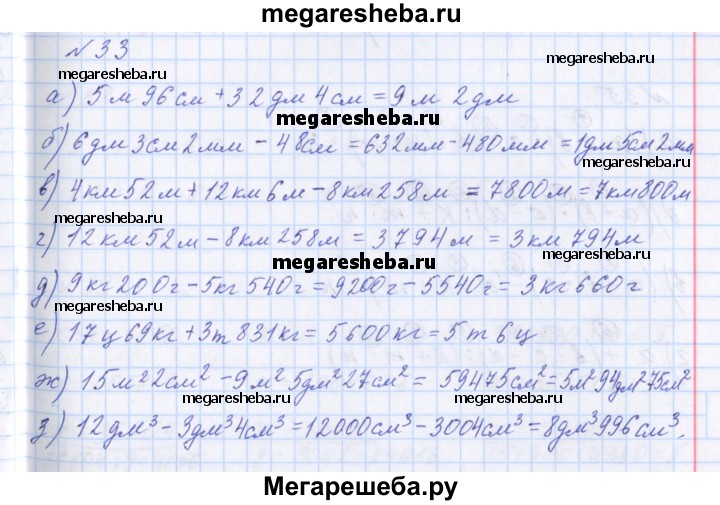 megaresheba.ru
№ 33
megaresheba.ru megaresheba.ru
а) 5 м 96 см + 32 дм 4 см = 9 м 2 дм
megaresheba.ru
б) 6 дм 3 см 2 мм - 48 см = 632 мм - 480 мм = 1 дм 5 см 2 мм
megaresheba.ru megaresheba.ru
в) 4 км 52 м + 12 км 6 м - 8 км 258 м = 7800 м = 7 км 800 м
г) 12 км 52 м - 8 км 258 м = 3794 м = 3 км 794 м
megaresheba.ru
д) 9 кг 200 г - 5 кг 540 г = 9200 г - 5540 г = 3 кг 660 г
megaresheba.ru megaresheba.ru
е) 17 ц 69 кг + 3 т 831 кг = 5600 кг = 5 т 6 ц
ж) 15 м² 2 см² - 9 м² 5 дм² 27 см² = 59475 см² = 5 м² 94 дм² 75 см²
megaresheba.ru megaresheba.ru
з) 12 дм³ - 3 дм³ 4 см³ = 12000 см³ - 3004 см³ = 8 дм³ 996 см³.
Мегарешеба.ру